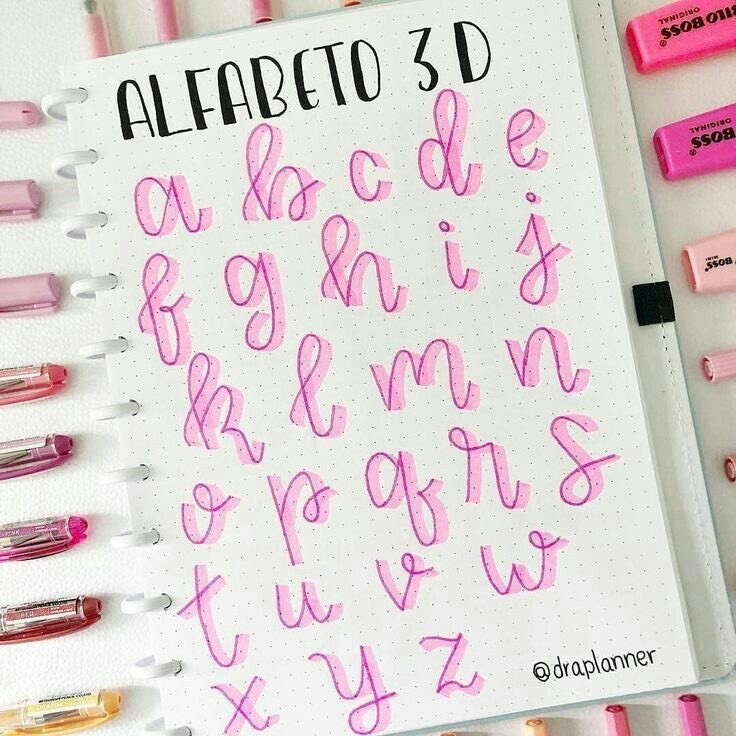 ALFABETO 3D
a b c d e
f g h i j
k l m n
o p q r s
t u v w
x y z
@draplanner
BOSS
ORIGINAL
BOSS
ORIGINAL
BOSS
MINI